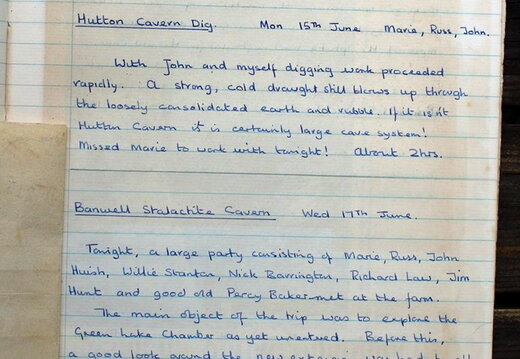 Hutton Cavern Dig. Mon 15TH June Marie, Russ, John.
With John and myself digging work proceeded
rapidly. A strong, cold draught still blows up through
the loosely consolidated earth and rubble. If it isn't
Hutton Cavern it is certainly large cave system!
Missed Marie to work with tonight! About 2hrs.
Banwell Stalactite Cavern Wed 17TH June.
Tonight, a large party consisting of Marie, Russ, John
Huish, Willie Stanton, Nick Barrington, Richard Law, Jim
Hunt and good old Percy Baker met at the farm.
The main object of the trip was to explore the
Green Lake Chamber as yet unentered. Before this,
a good look around the new